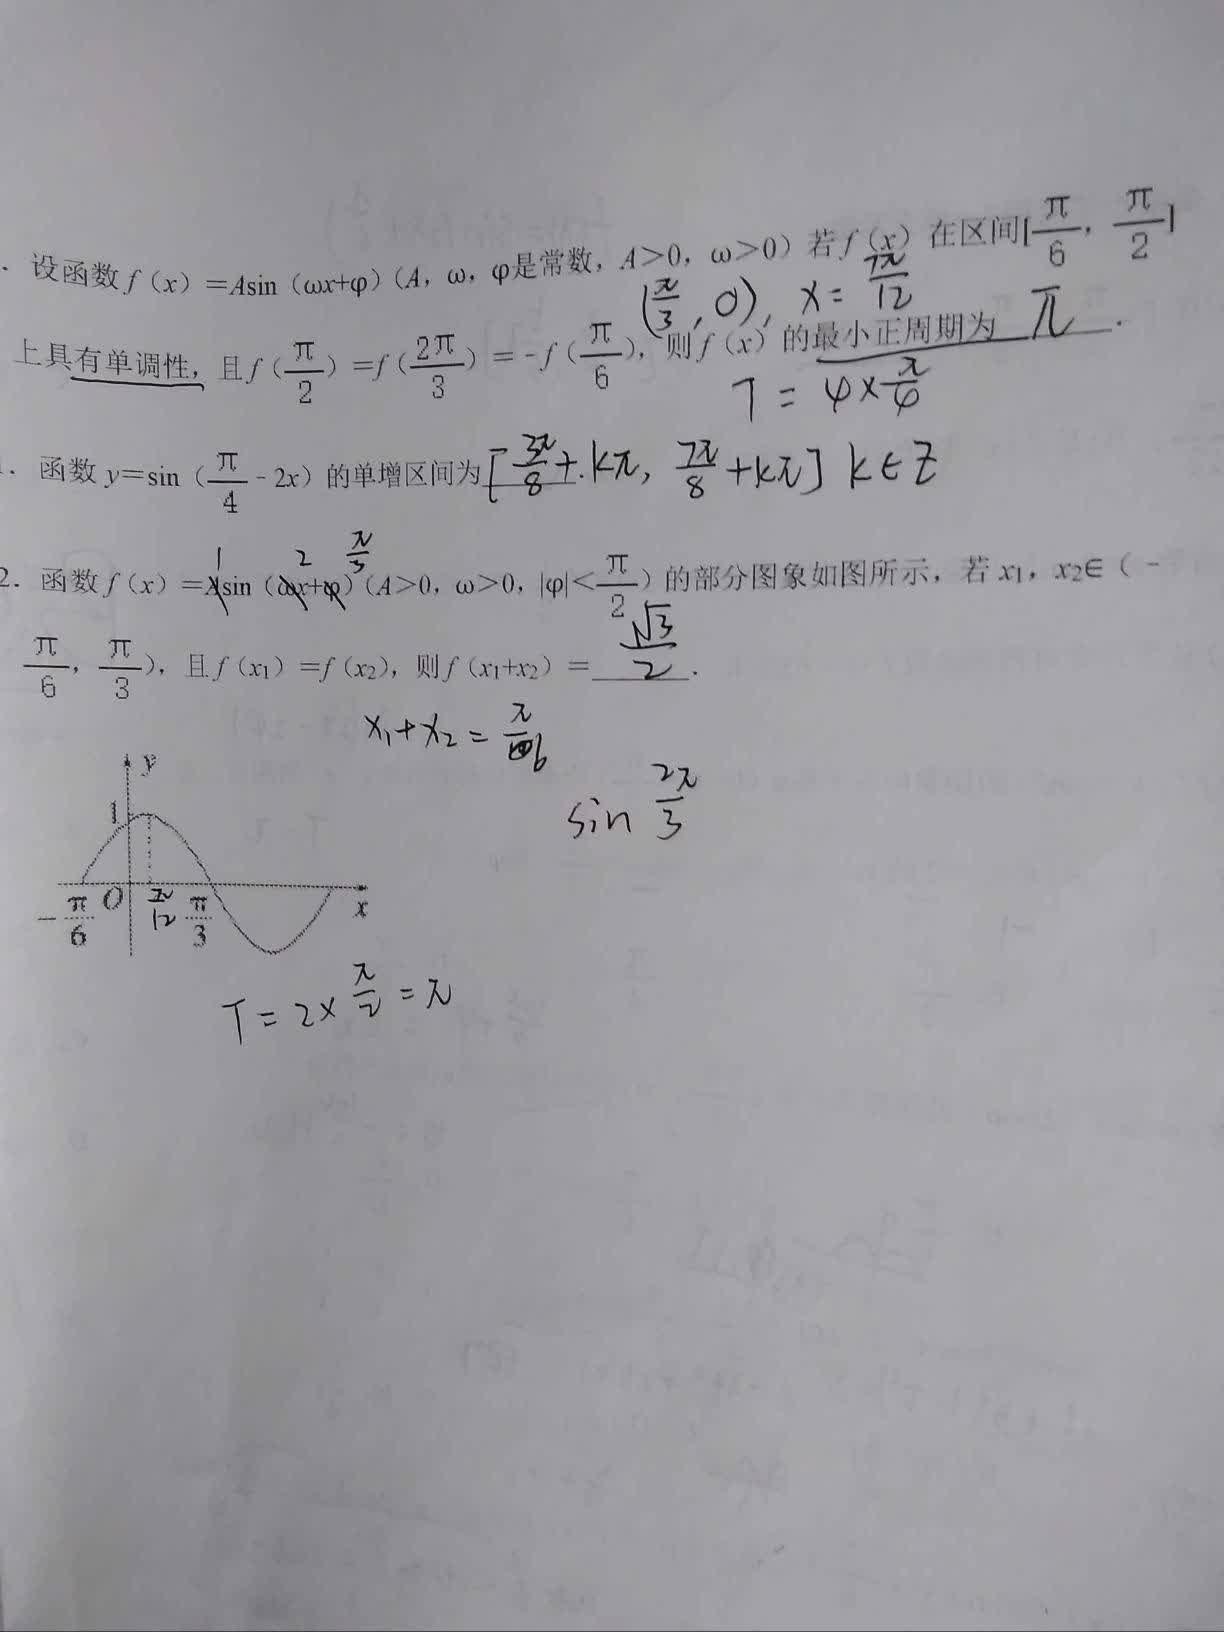 . 设函数 f（x）=Asin（ωx+φ）（A，ω，φ是常数，A>0，ω>0）若 f（x）在区间[π/6，π/2]
(π/3, 0), x = 7π/12
上具有单调性，且 f（π/2）=f（2π/3）=-f（π/6），则 f（x）的最小正周期为 π .
T = 4×π/4
1. 函数 y=sin（π/4 - 2x）的单增区间为 [3π/8 + kπ, 7π/8 + kπ] k∈Z
1 2 π/3
2. 函数 f（x）=Asin（ωx+φ）（A>0，ω>0，|φ|<π/2）的部分图象如图所示，若 x₁，x₂∈（-
π/6，π/3），且 f（x₁）=f（x₂），则 f（x₁+x₂）= √3/2 .
x₁+x₂ = π/6
sin 2π/3
y
1
-π/6 O π/12 π/3 x
T = 2×π/2 = π